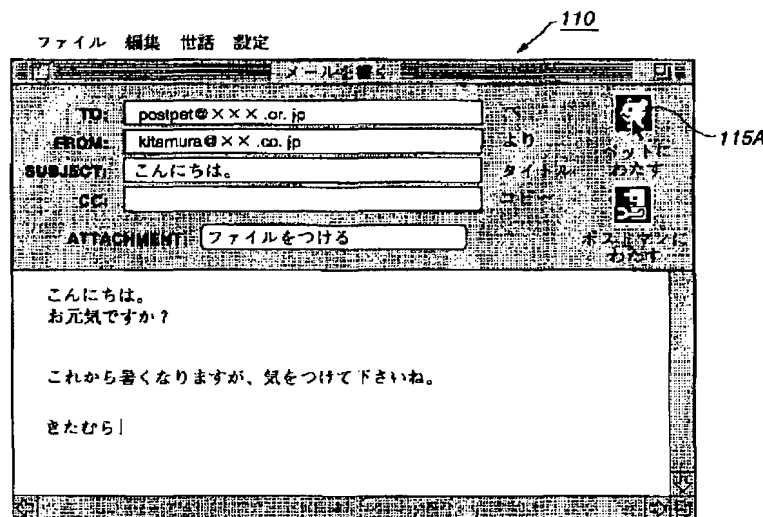 110
ファイル 編集 世話 設定
メールを書く
TO: postpet@×××.or.jp へ
FROM: kitamura@××.co.jp より
SUBJECT: こんにちは。 タイトル
CC: コピー
ATTACHMENT: ファイルをつける
115A
ペットに
わたす
ポストマンに
わたす
こんにちは。
お元気ですか?
これから暑くなりますが、気をつけて下さいね。
きたむら